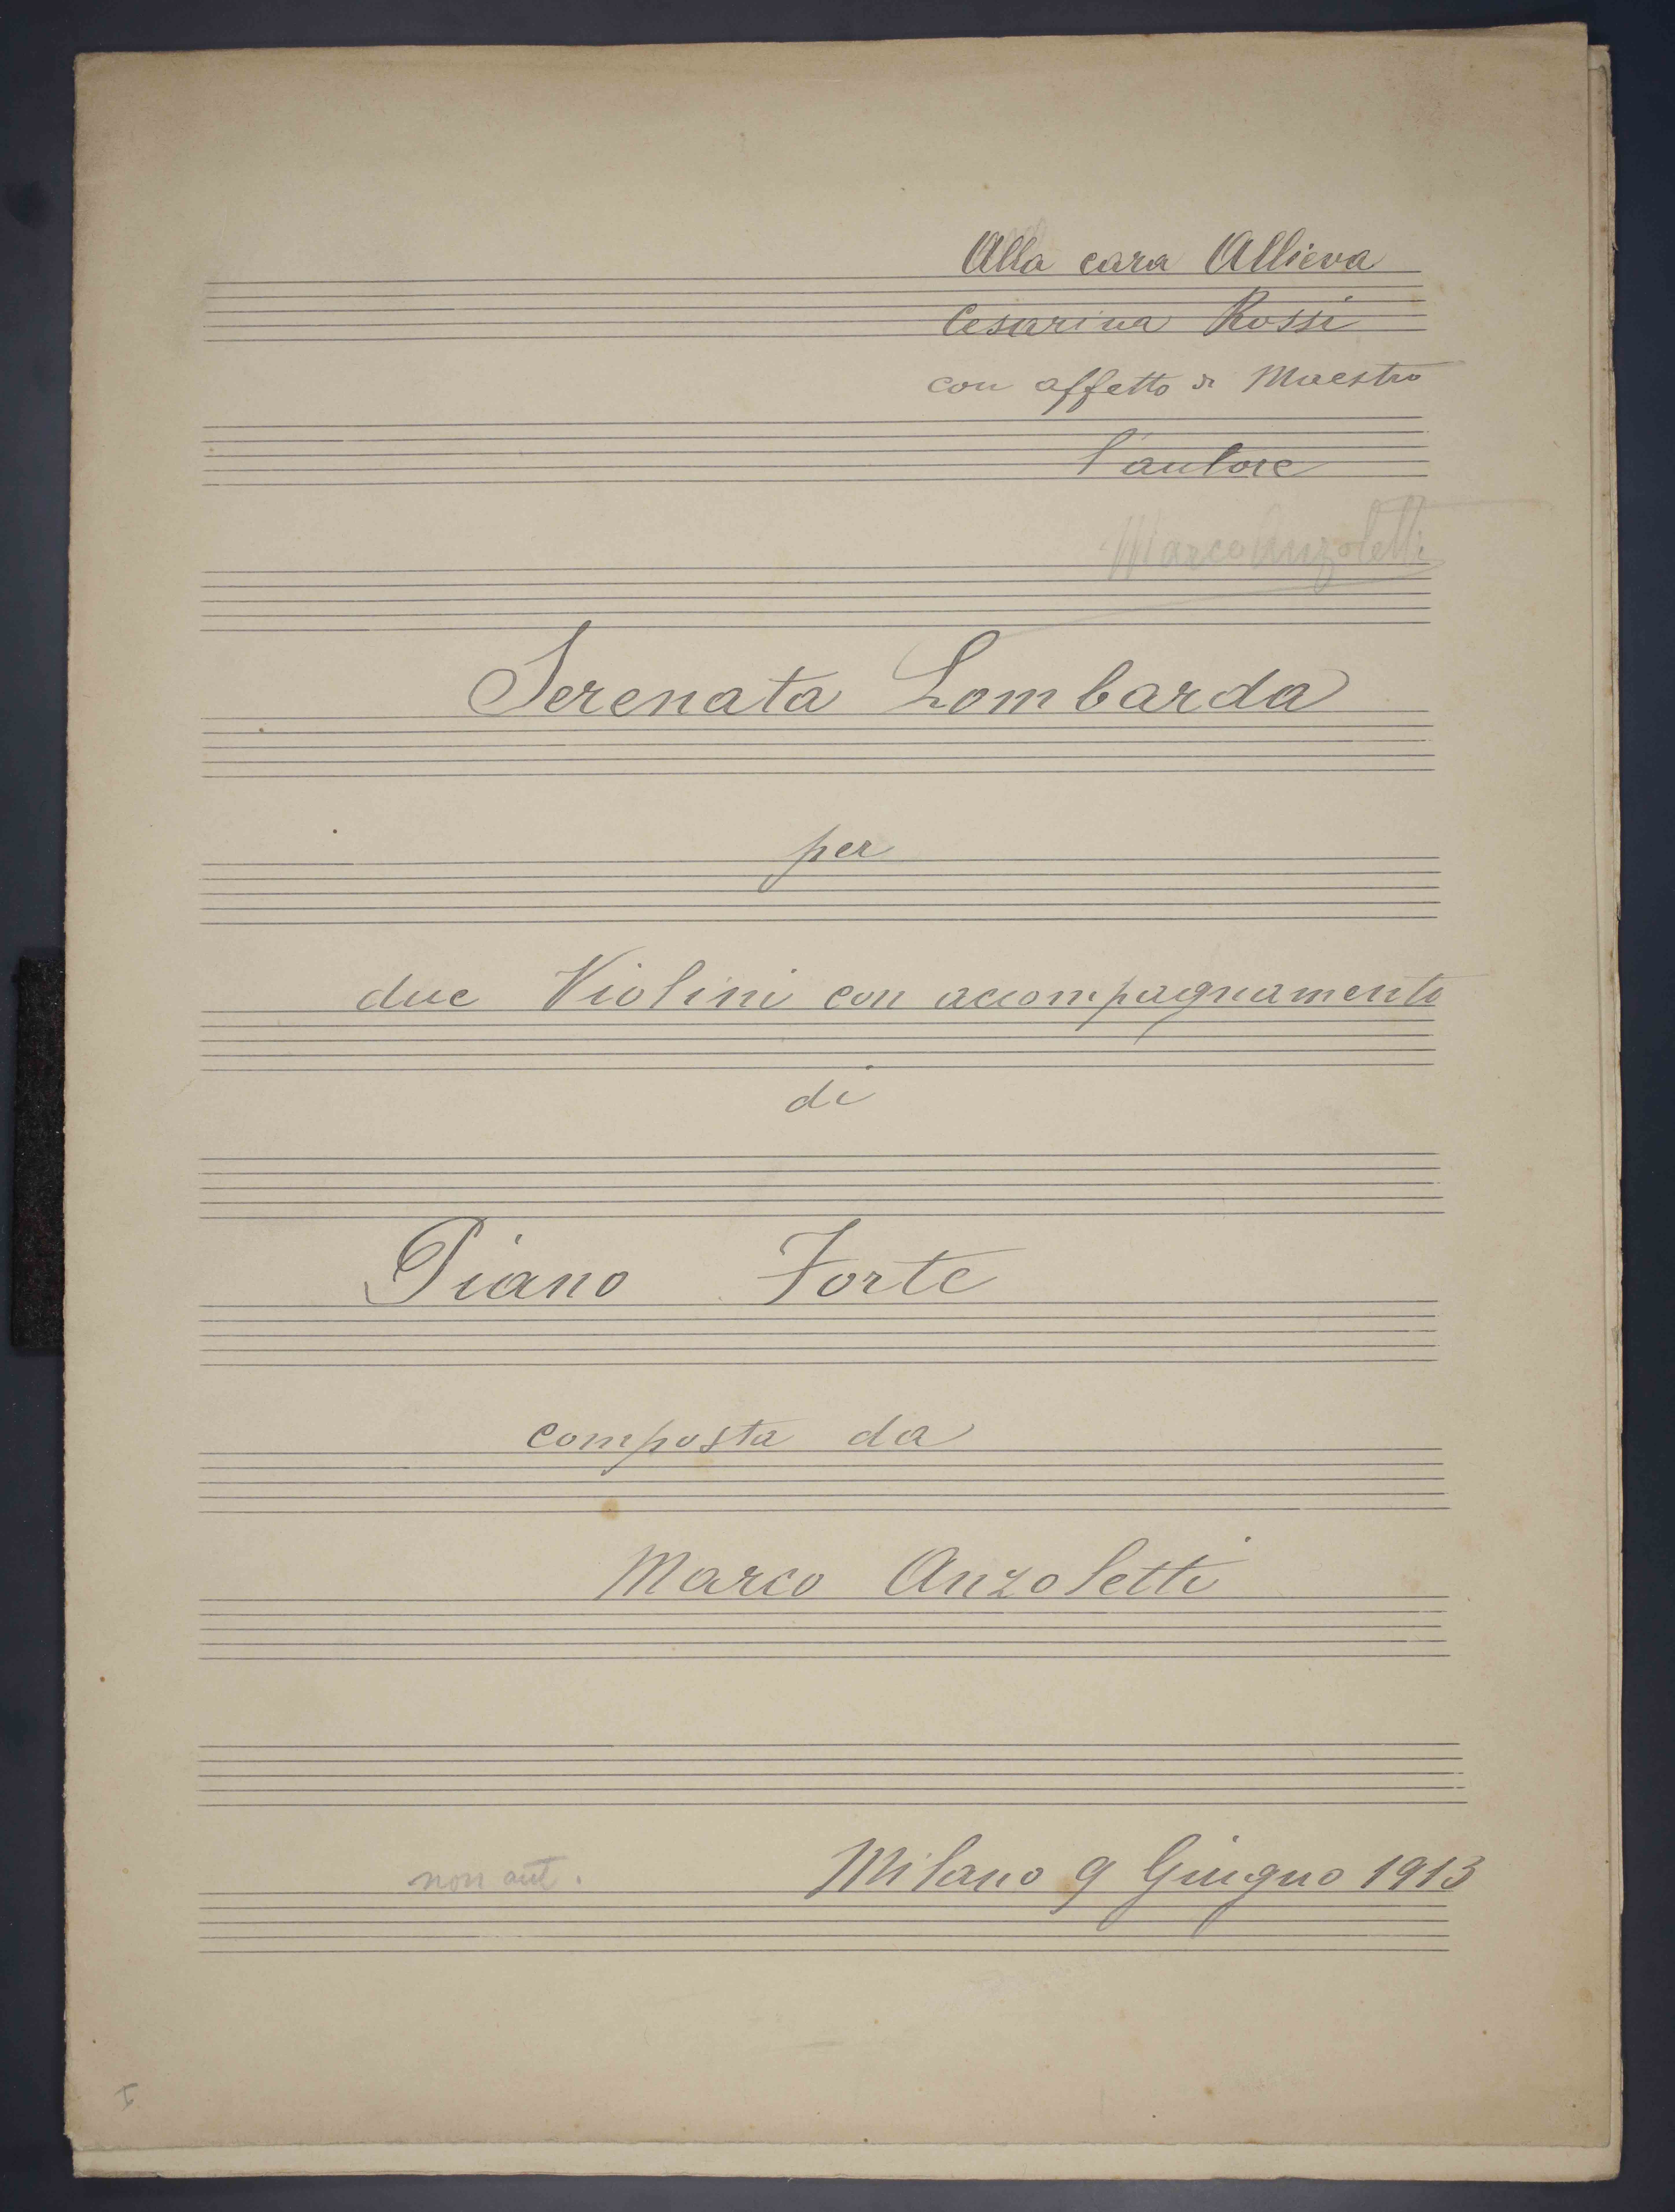 Alla cara Allieva
Cesarina Rossi
con affetto di Maestro
l'autore
Marco Anzoletti
Serenata Lombarda
per
due Violini con accompagnamento
di
Piano Forte
composta da
Marco Anzoletti
non aut. Milano 9 Giugno 1913